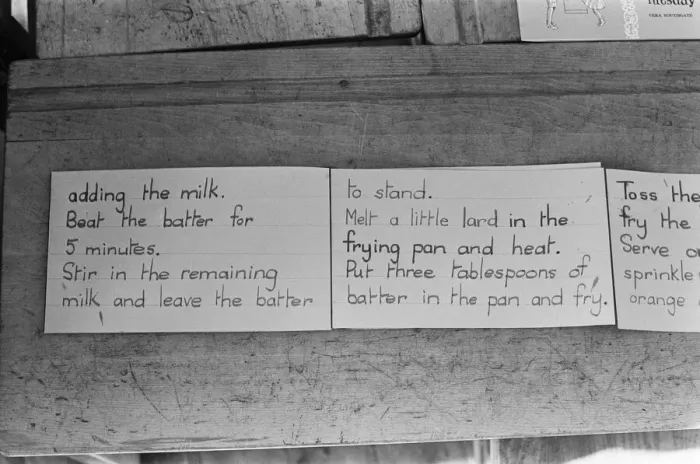 Tuesday
adding the milk.
Beat the batter for
5 minutes.
Stir in the remaining
milk and leave the batter
to stand.
Melt a little lard in the
frying pan and heat.
Put three tablespoons of
batter in the pan and fry.
Toss the
fry the
Serve
sprinkle
orange